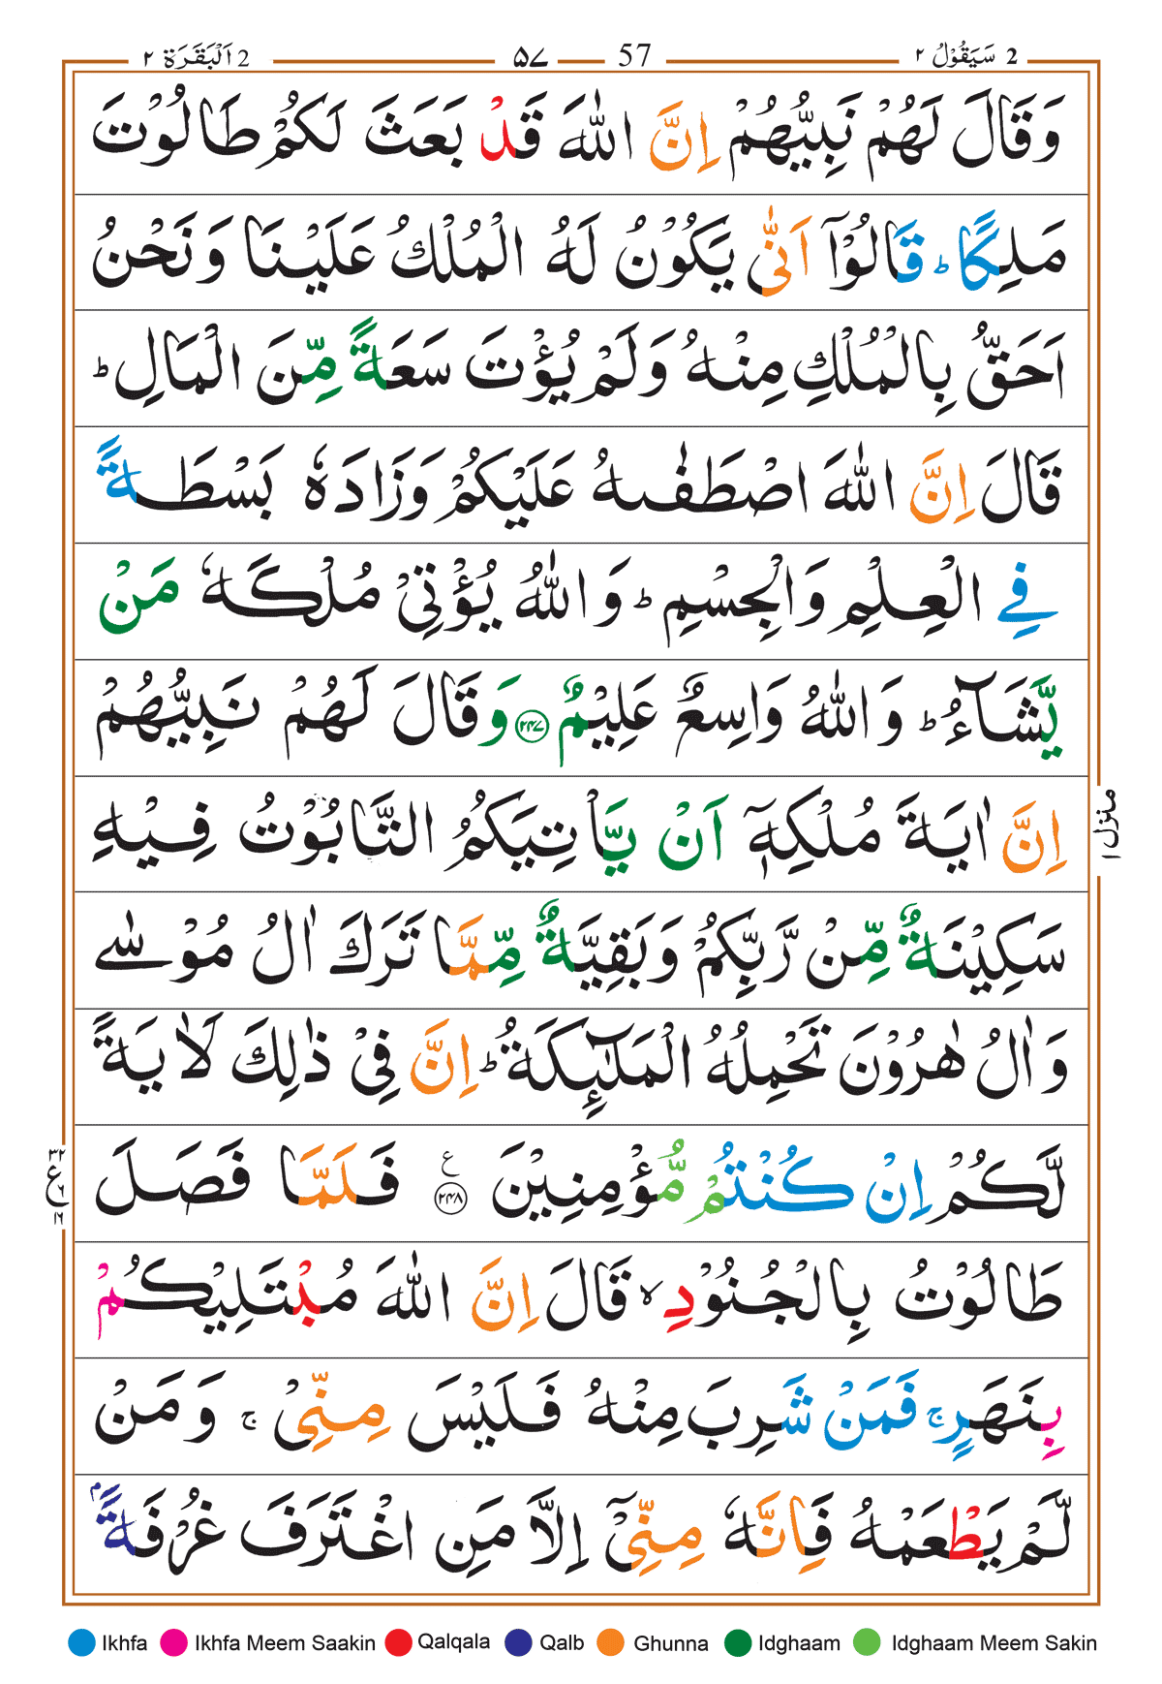 2 سَيَقُوْلُ ٢ 57 ۵۷ 2 اَلْبَقَرَة ٢
وَقَالَ لَهُمْ نَبِيُّهُمْ اِنَّ اللّٰهَ قَدْ بَعَثَ لَكُمْ طَالُوْتَ
مَلِكًا ؕ قَالُوْۤا اَنّٰى يَكُوْنُ لَهُ الْمُلْكُ عَلَيْنَا وَنَحْنُ
اَحَقُّ بِالْمُلْكِ مِنْهُ وَلَمْ يُؤْتَ سَعَةً مِّنَ الْمَالِ ؕ
قَالَ اِنَّ اللّٰهَ اصْطَفٰىهُ عَلَيْكُمْ وَزَادَهٗ بَسْطَةً
فِي الْعِلْمِ وَالْجِسْمِ ؕ وَاللّٰهُ يُؤْتِيْ مُلْكَهٗ مَنْ
يَّشَآءُ ؕ وَاللّٰهُ وَاسِعٌ عَلِيْمٌ ﴿۲۴۷﴾ وَقَالَ لَهُمْ نَبِيُّهُمْ
اِنَّ اٰيَةَ مُلْكِهٖۤ اَنْ يَّاْتِيَكُمُ التَّابُوْتُ فِيْهِ
سَكِيْنَةٌ مِّنْ رَّبِّكُمْ وَبَقِيَّةٌ مِّمَّا تَرَكَ اٰلُ مُوْسٰى
وَاٰلُ هٰرُوْنَ تَحْمِلُهُ الْمَلٰٓئِكَةُ ؕ اِنَّ فِيْ ذٰلِكَ لَاٰيَةً
لَّكُمْ اِنْ كُنْتُمْ مُّؤْمِنِيْنَ ﴿۲۴۸﴾ ع فَلَمَّا فَصَلَ
طَالُوْتُ بِالْجُنُوْدِ ۙ قَالَ اِنَّ اللّٰهَ مُبْتَلِيْكُمْ
بِنَهَرٍ ۚ فَمَنْ شَرِبَ مِنْهُ فَلَيْسَ مِنِّيْ ۚ وَمَنْ
لَّمْ يَطْعَمْهُ فَاِنَّهٗ مِنِّيْۤ اِلَّا مَنِ اغْتَرَفَ غُرْفَةًۢ
منزل ١
٣٢
ع
٦
١٦
Ikhfa Ikhfa Meem Saakin Qalqala Qalb Ghunna Idghaam Idghaam Meem Sakin